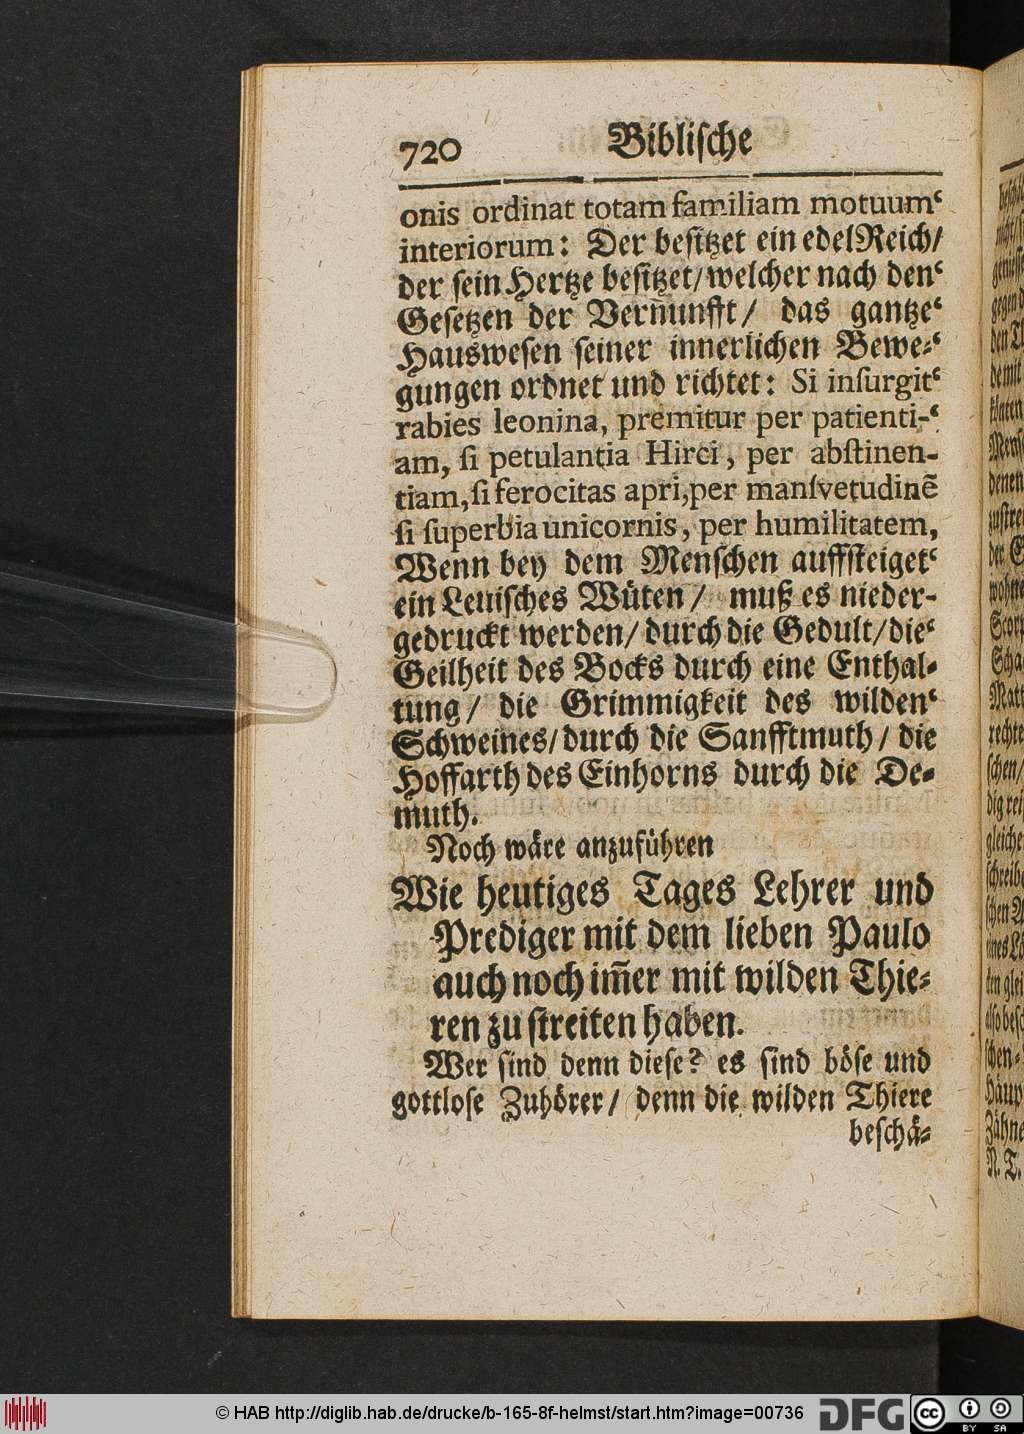 720 Biblische
onis ordinat totam familiam motuum‘
interiorum: Der besitzet ein edel Reich/
der sein Hertze besitzet/ welcher nach den‘
Gesetzen der Vern̄unfft/ das gantze‘
Hauswesen seiner innerlichen Bewe-‘
gungen ordnet und richtet: Si inſurgit‘
rabies leonina, premitur per patienti-‘
am, ſi petulantia Hirci, per abſtinen-
tiam, ſi ferocitas apri, per manſvetudinē
ſi ſuperbia unicornis, per humilitatem,
Wenn bey dem Menschen auffsteiget‘
ein Leuisches Wüten/ muß es nieder-
gedruckt werden/ durch die Gedult/ die‘
Geilheit des Bocks durch eine Enthal-
tung/ die Grimmigkeit des wilden‘
Schweines/ durch die Sanfftmuth/ die
Hoffarth des Einhorns durch die De-
muth.
Noch wäre anzuführen
Wie heutiges Tages Lehrer und
Prediger mit dem lieben Paulo
auch noch im̄er mit wilden Thie-
ren zu streiten haben.
Wer sind denn diese? es sind böse und
gottlose Zuhörer/ denn die wilden Thiere
beschä-
© HAB http://diglib.hab.de/drucke/b-165-8f-helmst/start.htm?image=00736
DFG
cc BY SA